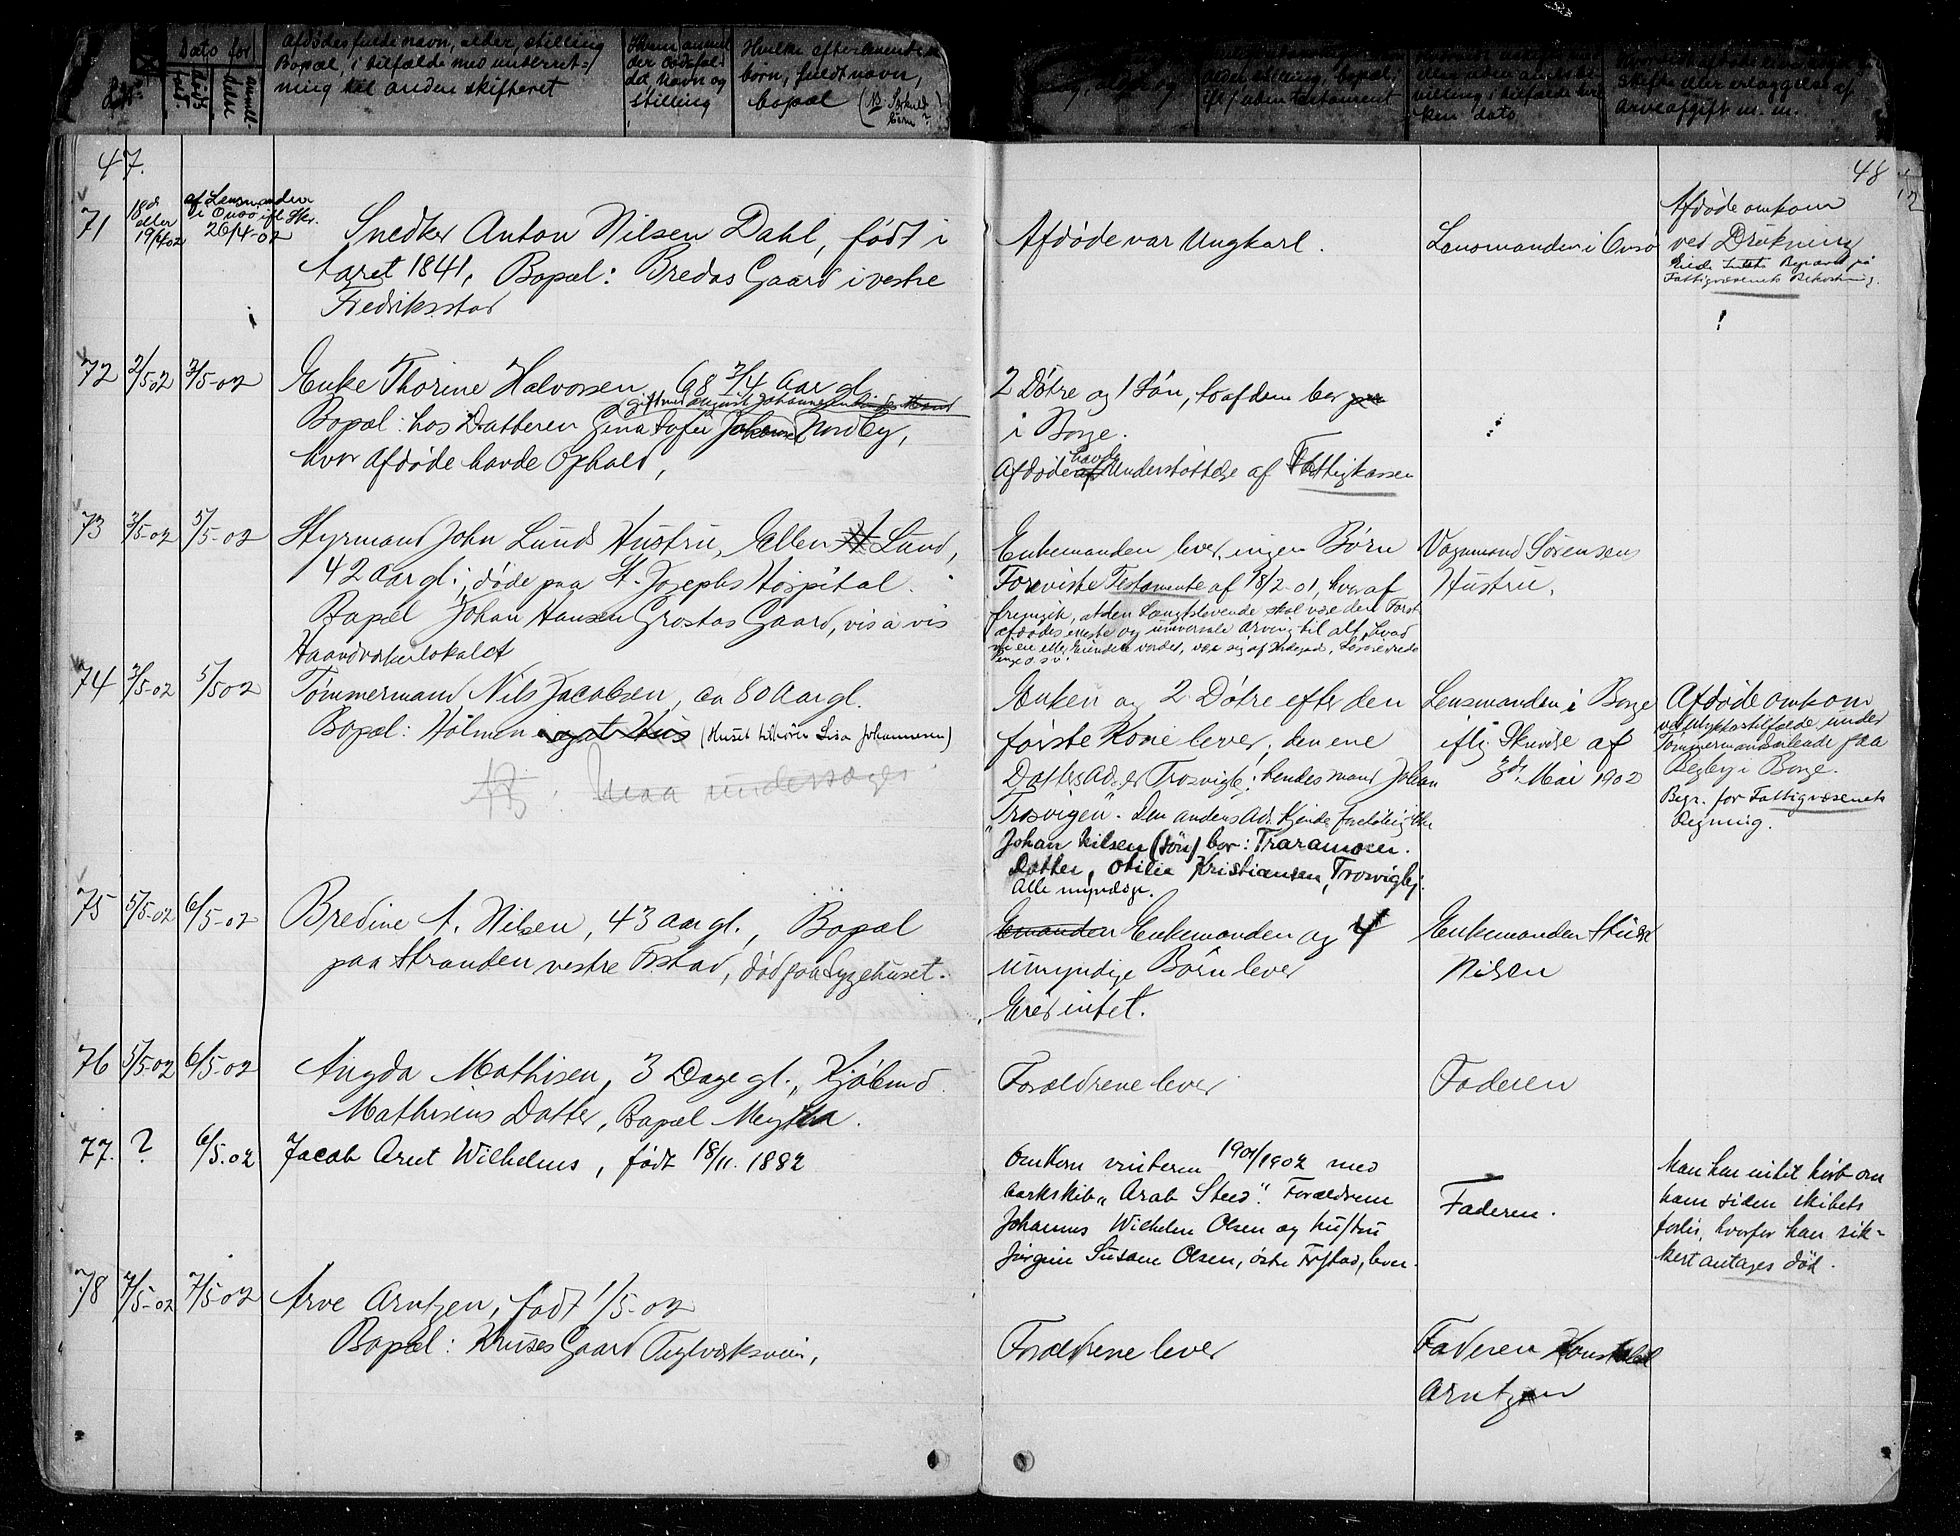 Dato for
døds
fald
anmel-
delse
Afdødes fulde navn, alder, stilling
Bopæl, i tilfælde med underret-
ning til anden skifteret
der dødsfal-
det Navn og
stilling
Hvilke efterlevende
børn, fuldt navn,
bopæl
bopæl,
uden testament
ken dato
skifte eller erlæggelse af
arveafgift m. m.
47.
48
71
18de eller 19/4 02
af Lensmanden i Onsø ifl. Skr. 26/4-02
Snedker Anton Nilsen Dahl, født i
Aaret 1841, Bopæl: Bredas Gaard i vestre
Fredriksstad
Afdøde var Ungkarl.
Lensmanden i Onsø
Afdøde omkom
ved Drukning
Eiede Intet. Begravet på
Fattigvæsenets Bekostning.
72
2/5 02
3/5-02
Enke Thorine Halvorsen 68 3/4 Aar gl.
gift med August Johannesen
Bopæl: hos Datteren Gina Sofie Johannes Nordby,
hvor Afdøde havde Ophold,
2 Døtre og 1 Søn, to af dem bor paa
i Borge.
Afdøde havde Understøttelse af Fattigkassen
73
3/5-02
5/5-02
Styrmand John Lunds Hustru, Ellen H Lund,
42 Aar gl., døde paa St. Josephs Hospital.
Bopæl Johan Hansen Grostas Gaard, vis a vis
Haandværkerlokalet
Enkemanden lever, ingen Børn
Foreviste Testamente af 18/2-01, hvoraf
fremgik, at den Længstlevende skal være den Først-
afdødes eneste og universale Arving til alt, hvad
Penge o.s.v.
Vognmand Sørensens
Hustru.
74
3/5-02
5/5 02
Tømmermand Nils Jacobsen, ca 80 Aar gl.
Bopæl: Holmen i eget Hus (Huset tilhører Lisa Johannesen)
NB. Maa undersøges
Enken og 2 Døtre efter den
første Kone lever, den ene
Datters Ad. er Trosvigb: hendes mand Johan
Trosvigen". Den andens Ad. kjendes foreløbig ikke
"Johan Nilsen (søn) bor: Traramosen.
Datter, Otilie Kristiansen, Trosvigbj.
Alle myndige.
Lensmanden i Borge
iflg. Skrivelse af
3de Mai 1902
Afdøde omkom
ved Ulykkestilfælde under
Tømmermandsarbeide paa
Begby i Borge.
Begr. for Fattigvæsenets
Regning.
75
5/5-02
6/5-02
Bredine A. Nilsen, 43 Aar gl., Bopæl
paa Stranden vestre Fstad, død paa Sygehuset.
Emanden Enkemanden og 4
umyndige Børn lever
Eied intet.
Enkemanden
Nilsen
76
5/5-02
6/5-02
Angda Mathisen, 3 Dage gl., Kjøbmd.
Mathisens Datter, Bopæl
Forældrene lever
Faderen
77.
?
6/5.02
Jacob Arnt Wilhelms, født 18/11. 1882
Omkom vinteren 1901/1902 med
barkskib "Arab Steed". Forældrene
Johannes Wilhelm Olsen og hustru
Jørgine Susanne Olsen, østre Frstad, lever.
Faderen.
Man har intet hørt om
ham siden skibets
forlis, hvorfor han sik-
kert antages død.
78
7/5-02
7/5-02
Arve Arntzen, født 1/5-02
Bopæl: Kruses Gaard Teglværksvei,
Forældrene lever
Faderen Konstabel
Arntzen